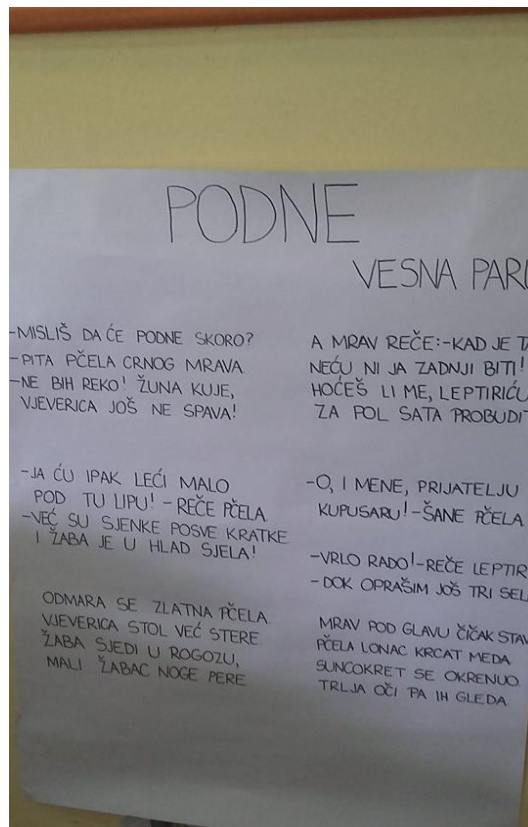 PODNE
VESNA
-MISLIŠ DA ĆE PODNE SKORO?
-PITA PČELA CRNOG MRAVA
-NE BIH REKO! ŽUNA KUJE,
VJEVERICA JOŠ NE SPAVA!
-JA ĆU IPAK LEĆI MALO
POD TU LIPU! - REČE PČELA
-VEĆ SU SJENKE POSVE KRATKE
I ŽABA JE U HLAD SJELA!
ODMARA SE ZLATNA PČELA
VJEVERICA STOL VEĆ STERE
ŽABA SJEDI U ROGOZU,
MALI ŽABAC NOGE PERE
A MRAV REČE:-KAD JE
NEĆU NI JA ZADNJI BITI!
HOĆEŠ LI ME, LEPTIRIĆU
ZA POL SATA
-O, I MENE, PRIJATELJU
KUPUSARU!-ŠANE PČELA
-VRLO RADO!-REČE LEPTIR
-DOK OPRAŠIM JOŠ TRI
MRAV POD GLAVU ČIČAK
PČELA LONAC KRCAT MEDA
SUNCOKRET SE OKRENUO
TRLJA OČI PA IH GLEDA